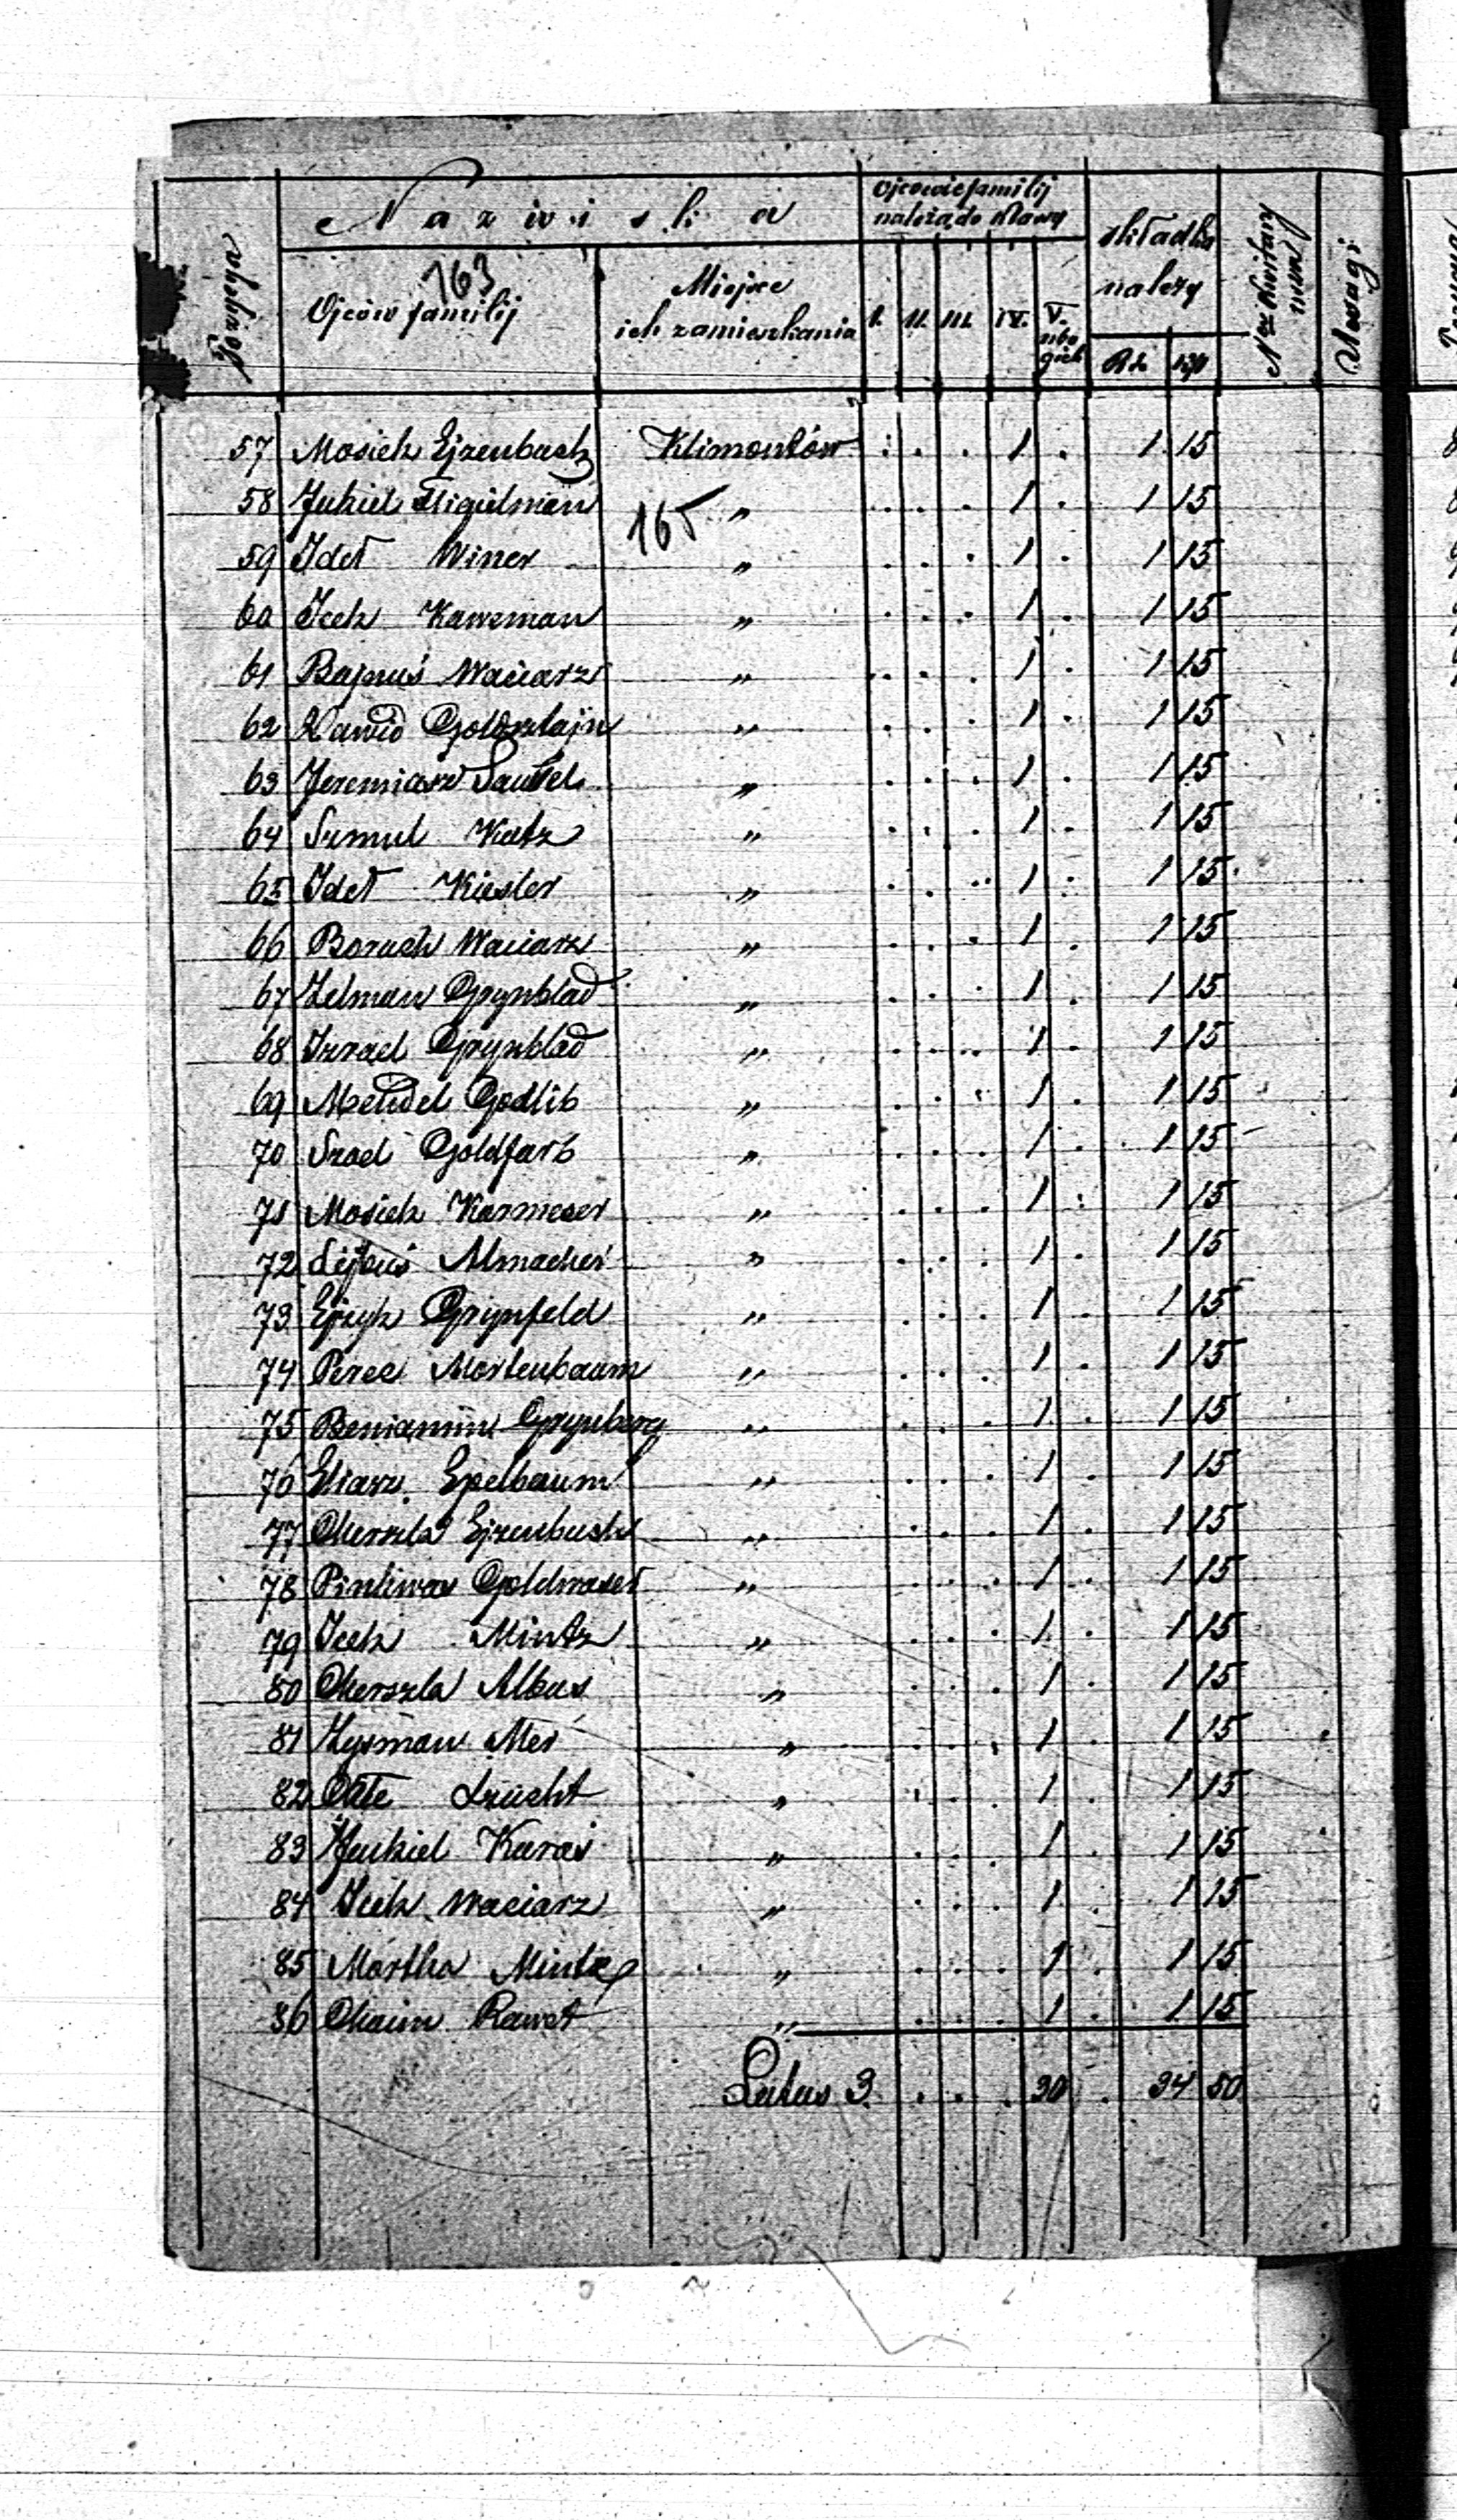 Pozycya
Nazwiska
Ojcowie familij należą do klassy
Składka należy
Nrr Kwitaryusza
Uwagi
163
Ojców familij
Miejsce ich zamieszkania
I. II. III. IV. V. ubogich
Rs. kop
57 Mosiek Ejzenbuch Klimontów . . . 1 . 1 15
165
58 Jukiel Fligielman " . . . 1 . 1 15
59 Idel Winer " . . . 1 . 1 15
60 Icek Kawsman " . . . 1 . 1 15
61 Bajnuś Waciarz " . . . 1 . 1 15
62 Dawid Goldsztajn " . . . 1 . 1 15
63 Jeremiasz " . . . 1 . 1 15
64 Szmul Katz " . . . 1 . 1 15
65 Idel Kiesler " . . . 1 . 1 15
66 Boruch Waciarz " . . . 1 . 1 15
67 Zelman Grynblad " . . . 1 . 1 15
68 Izrael Grynblad " . . . 1 . 1 15
69 Mendel Godlib " . . . 1 . 1 15
70 Srael Goldfarb " . . . 1 . 1 15
71 Mosiek Karmeser " . . . 1 . 1 15
72 Lejbuś Almacher " . . . 1 . 1 15
73 Ejzyk Grynfeld " . . . 1 . 1 15
74 Perec Mortenbaum " . . . 1 . 1 15
75 Beniamin Grynberg " . . . 1 . 1 15
76 Eliasz Epelbaum " . . . 1 . 1 15
77 Herszla Ejzenbuch " . . . 1 . 1 15
78 Pinkwas Goldwaser " . . . 1 . 1 15
79 Icek Mintz " . . . 1 . 1 15
80 Herszla Albus " . . . 1 . 1 15
81 Zysman Mer " . . . 1 . 1 15
82 " . . . 1 . 1 15
83 Jukiel Karaś " . . . 1 . 1 15
84 Icek Waciarz " . . . 1 . 1 15
85 Mortka Mintz " . . . 1 . 1 15
86 Chaim Rawet " . . . 1 . 1 15
Latus 3. . . . 30 . 34 50